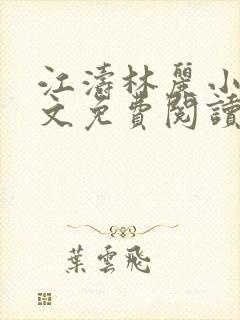 江濤林麗小
文免費閱讀
葉雲飛